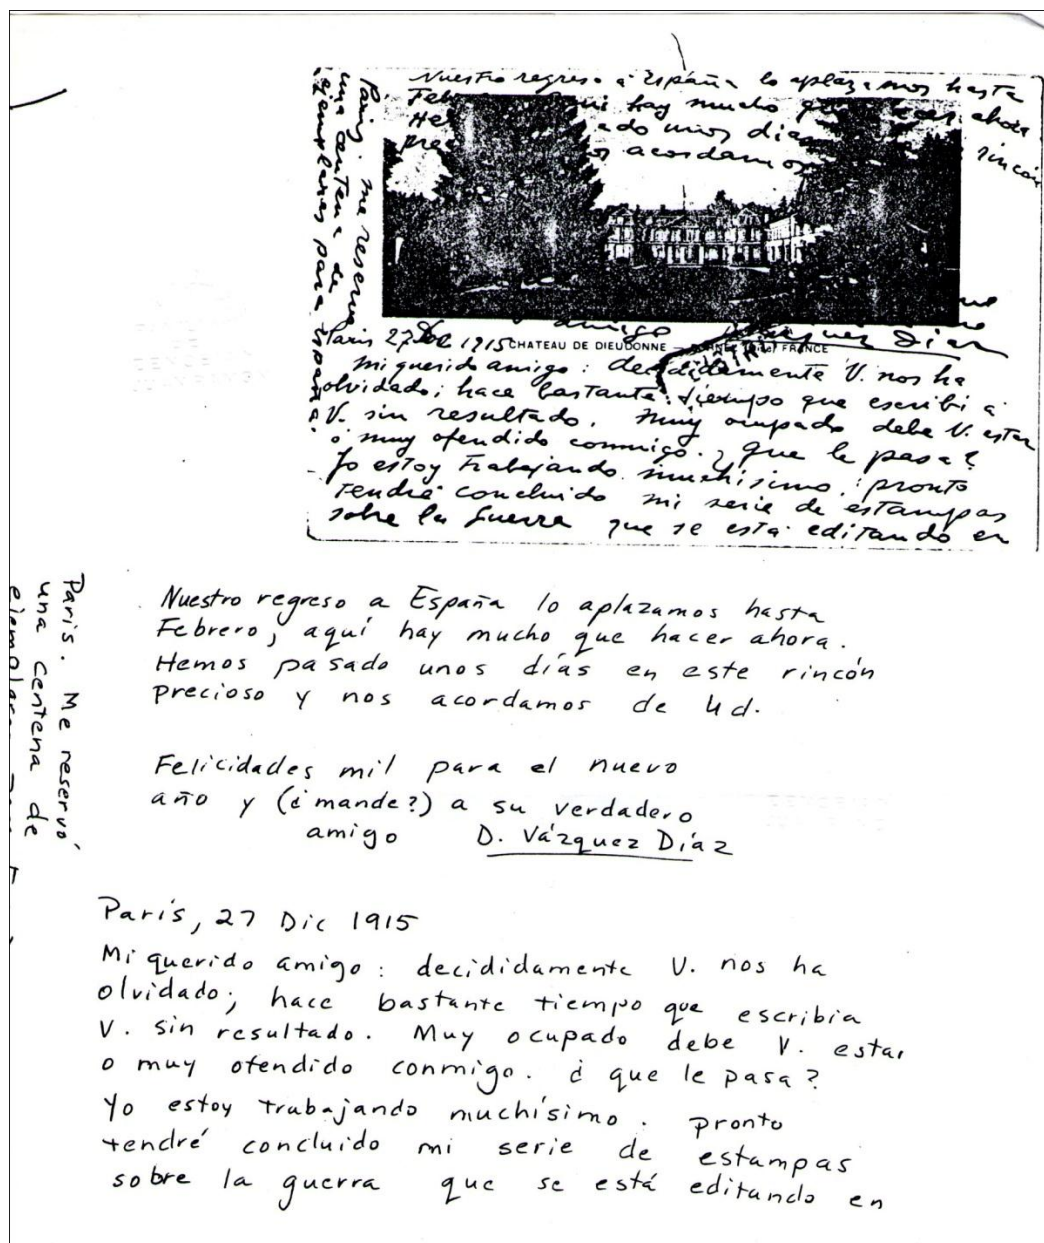 Nuestro regreso a España lo aplazamos hasta
Feb hay mucho ahora
He ado unos dias rincón
pre os acordamos
Paris. me reservo
una centena de
ejemplares para España
amigo Vázquez Diaz
CHATEAU DE DIEUDONNE — FRANCE
Paris 27 Dic 1915
mi querido amigo: decididamente V. nos ha
olvidado; hace bastante tiempo que escribi a
V. sin resultado. Muy ocupado debe V. estar
o muy ofendido conmigo. ¿que le pasa?
Yo estoy trabajando muchisimo. pronto
tendré concluido mi serie de estampas
sobre la guerra que se está editando en
Nuestro regreso a España lo aplazamos hasta
Febrero, aquí hay mucho que hacer ahora.
Hemos pasado unos días en este rincón
precioso y nos acordamos de Ud.
Felicidades mil para el nuevo
año y (¿mande?) a su verdadero
amigo D. Vázquez Díaz
París. Me reservó
una centena de
París, 27 Dic 1915
Mi querido amigo: decididamente V. nos ha
olvidado; hace bastante tiempo que escribia
V. sin resultado. Muy ocupado debe V. estar
o muy ofendido conmigo. ¿que le pasa?
Yo estoy trabajando muchísimo. pronto
tendré concluido mi serie de estampas
sobre la guerra que se está editando en